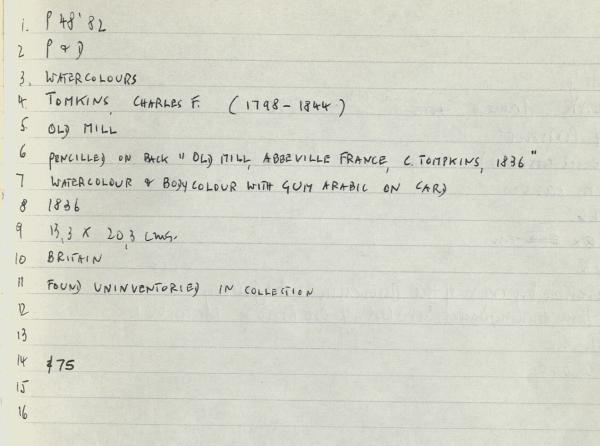 1. P 48'82
2 P & D
3. WATERCOLOURS
4. TOMKINS, CHARLES F. (1798-1844)
5. OLD MILL
6 PENCILLED ON BACK "OLD MILL, ABBEVILLE FRANCE, C. TOMPKINS, 1836"
7 WATERCOLOUR & BODYCOLOUR WITH GUM ARABIC ON CARD
8 1836
9 13,3 X 20,3 cms.
10 BRITAIN
11 FOUND UNINVENTORIED IN COLLECTION
12
13
14 $75
15
16